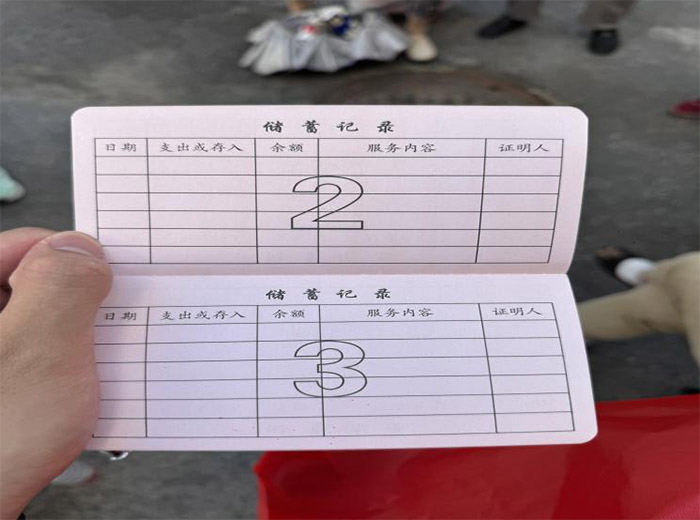 储蓄记录
日期 支出或存入 余额 服务内容 证明人
2
储蓄记录
日期 支出或存入 余额 服务内容 证明人
3